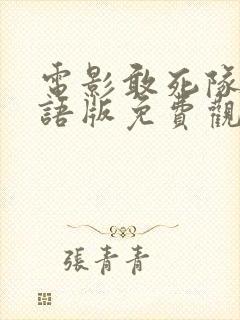 電影敢死隊
語版免費觀
張青青